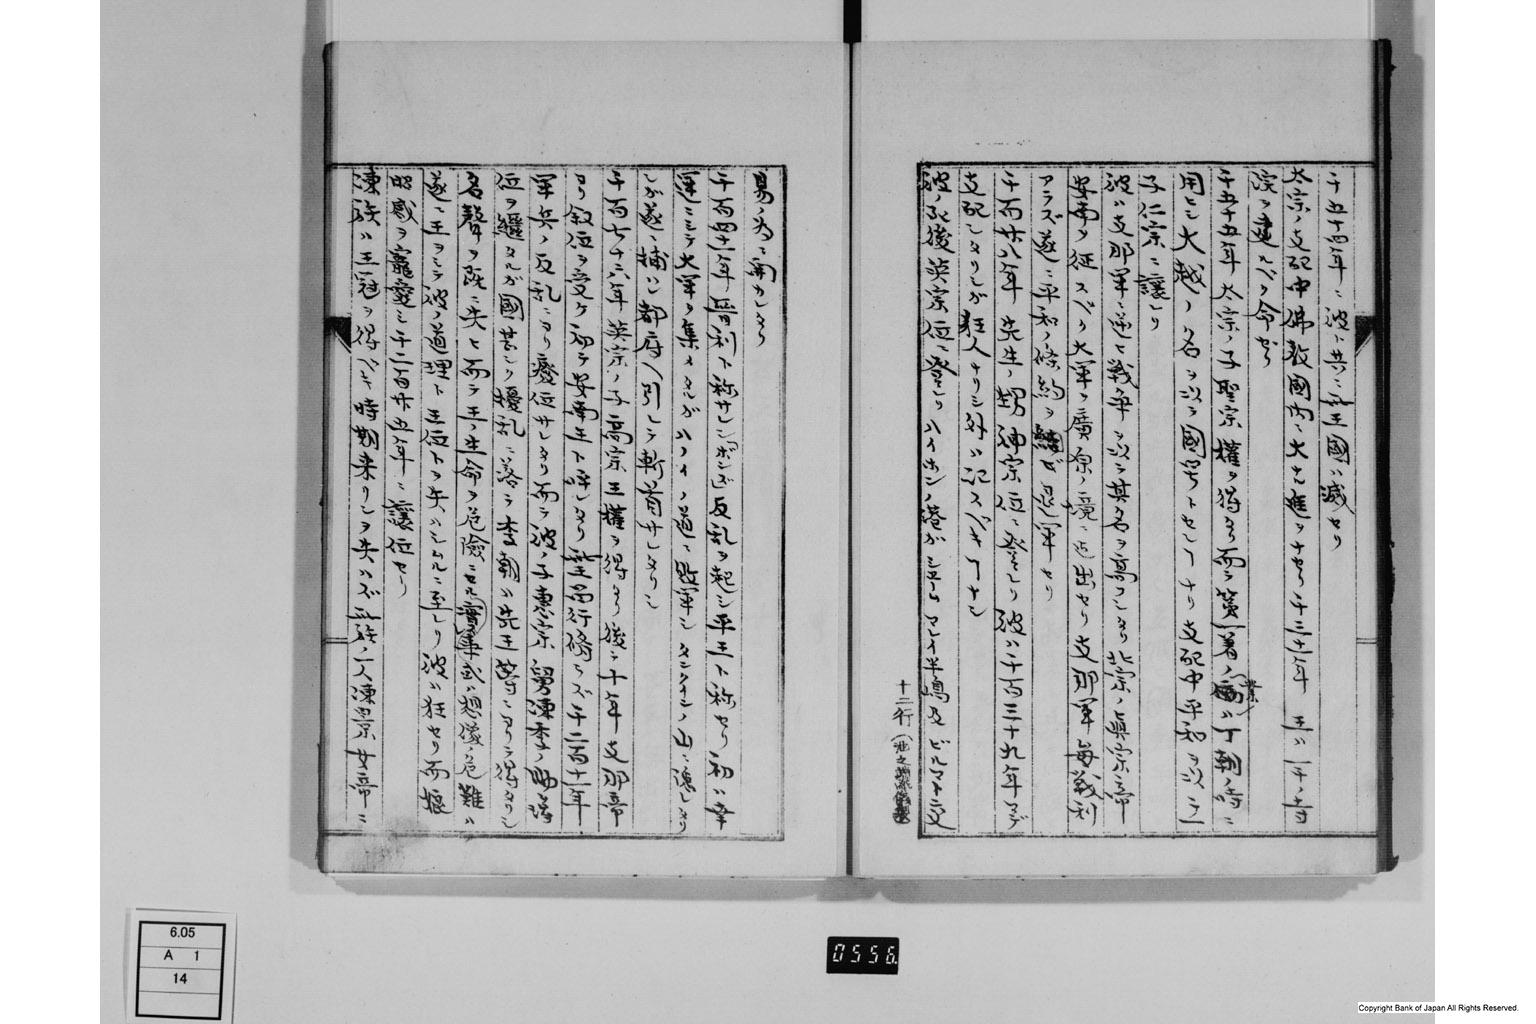 千五十四年ニ彼ト共ニ此王國ハ滅セリ
太宗ノ支配中佛教國内ニ大ナル進ヲナセリ千三十一年 王ハ一千ノ寺
院ヲ建ベク命セリ
千五十五年 太宗ノ子聖宗權ヲ得タリ而シテ ノ ハ丁朝ノ時ニ
用ヒシ大越ノ名ヲ以テ國号トセシ ナリ支配中平和ヲ以テシ
子仁宗ニ讓レリ
彼ハ支那軍ニ逆ヒ戰争 以テ其名ヲ高フシタリ北宗ノ眞宗帝
安南ヲ征スベク大軍ヲ廣 ノ境ニ 出セリ支那軍毎戰利
アラズ遂ニ平和ノ條約ヲ ビ退軍セリ
千百廿八年 先生ノ甥神宗位ニ登レリ彼ハ千百三十九年マデ
支配シタリシガ狂人ナリシ外ハ記スベキ ナシ
彼ノ死後英宗位ニ登レリ ハイホンノ港ガ シヤーム マレイ半嶋及 ビルマト交
十二行
易ノ為ニ開カレタリ
千百四十一年 晋利ト称サレシ ボンズ 反乱ヲ起シ平王ト称セリ初ハ幸
運ニシテ大軍ヲ集メタルガ ハノイノ道ニ敗軍シ ノ山ニ隠レタリ
シガ遂ニ捕ハレ都府ヘ引レテ斬首サレタリシ
千百七十六年 英宗ノ子高宗王權ヲ得タリ後チ十年支那帝
ヨリ敘位ヲ受ケ初テ安南王ト許レタリ此王品行修ラズ千二百十一年
軍兵ノ反乱ニヨリ廢位サレタリ而シテ彼ノ子惠宗 舅陳李ノ助 ニ
位ヲ繼タルガ國甚シク擾乱ニ落テ李朝ハ先王 ニヨリテ得タリシ
名聲ヲ既ニ失ヒ而シテ王ノ生命ヲ危險ニセル 或ハ想像ノ危難ハ
遂ニ王ヲシテ彼ノ道理ト王位トヲ失ハシムルニ至レリ彼ハ狂セリ而 娘
昭 ヲ寵愛シ千二百廿五年ニ讓位セリ
陳族ハ王冠ヲ得ベキ時期来リシヲ失ハズ此族ノ一人陳景女帝ニ
6.05
A 1
14
0556
Copyright Bank of Japan All Rights Reserved.